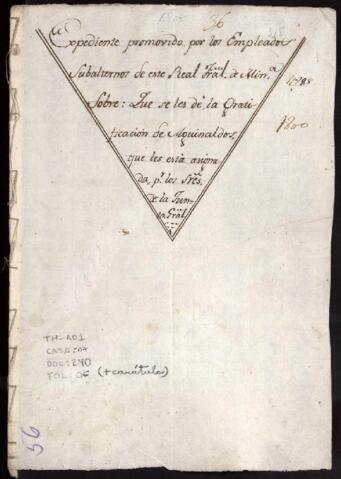 96
Expediente promovido por los Empleados
Subalternos de este Real Tral. de Min.a
Sobre: Que se les dè la Grati-
ficación de Aguinaldos,
1800
que les està asigna-
da, pr. los Sres.
de la Jun-
ta Gral.
TH-AO1
CAJA: 07
DOC: 240
FOL: 06 (+ carátulas)
56